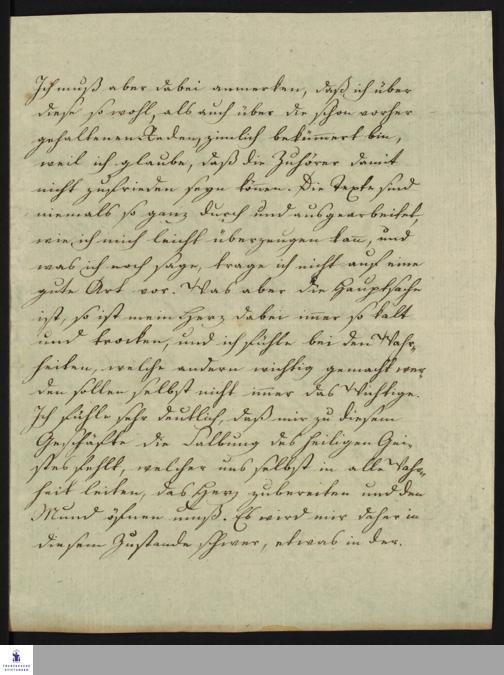 Ich muß aber dabei anmerken, daß ich über
diese sowohl, als auch über die schon vorher
gehaltenen Reden, zimlich bekümmert bin,
weil ich glaube, daß die Zuhörer damit
nicht zufrieden seyn könen. Die Texte sind
niemals so ganz durch und ausgearbeitet,
wie ich mich leicht überzeugen kan, und
was ich noch sage, trage ich nicht auf eine
gute Art vor. Was aber die Hauptsache
ist, so ist mein Herz dabei imer so kalt
und trocken, und ich fühle bei den Wahr-
heiten, welche andern wichtig gemacht wer-
den sollen selbst nicht imer das Wichtige.
Ich fühle sehr deutlich, daß mir zu diesem
Geschäfte die Salbung des heiligen Gei-
stes fehlt, welcher uns selbst in alle Wahr-
heit leiten, das Herz zubereiten und den
Mund öfnen muß. Es wird mir daher in
diesem Zustande schwer, etwas in der.
FRANCKESCHE
STIFTUNGEN